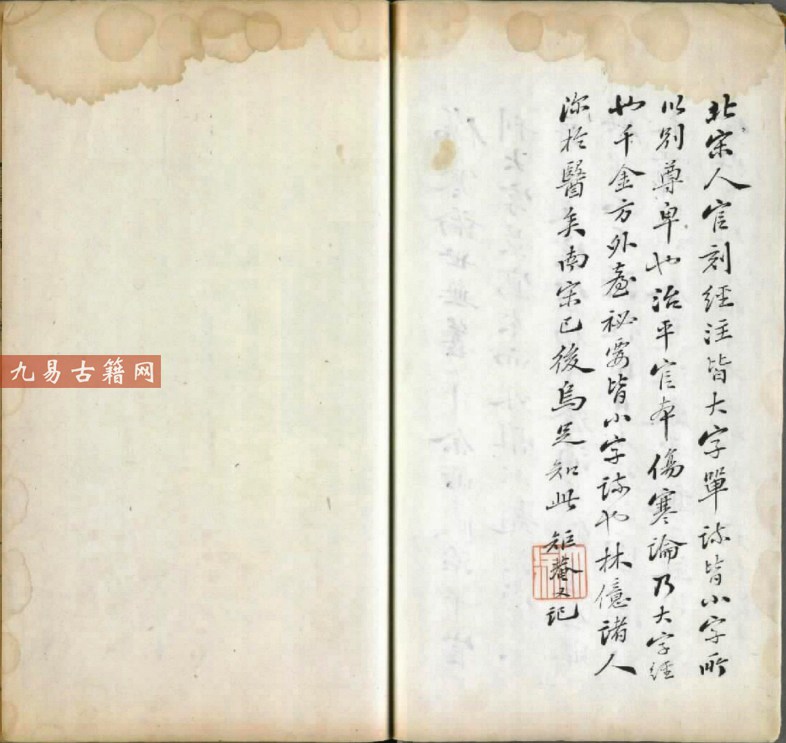 北宋人官刻經注皆大字單疏皆小字所
以別尊卑也治平官本傷寒論乃大字經
也千金方外臺祕要皆小字疏也林億諸人
深於醫矣南宋已後烏足知此 矩菴又記
九易古籍网